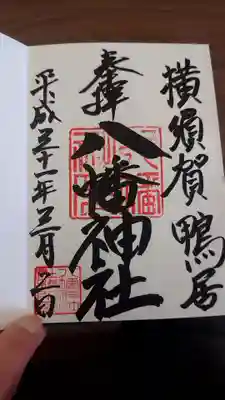 横須賀 鴨居
奉拝
八幡神社
平成三十一年三月二日